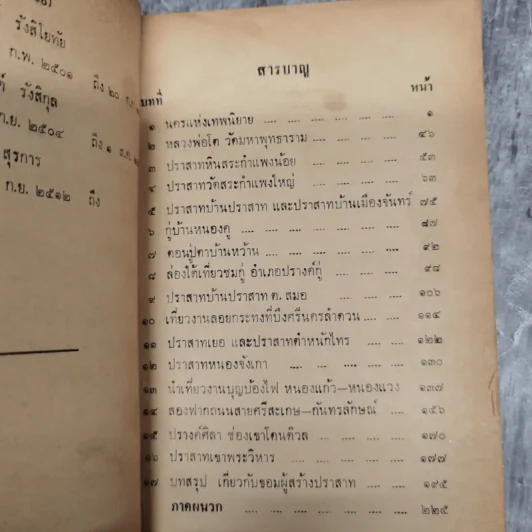 รังสิโยทัย
ก.พ. ๒๕๐๑ ถึง ๒๐
รังสิกุล
ก.ย. ๒๕๐๔ ถึง ๑
สุรการ
ก.ย. ๒๕๑๒ ถึง
สารบาญ
บทที่ หน้า
๑ นครแห่งเทพนิยาย .... .... .... .... .... ๑
๒ หลวงพ่อโต วัดมหาพุทธาราม .... .... .... ๔๖
๓ ปราสาทหินสระกำแพงน้อย .... .... .... ๕๓
๔ ปราสาทวัดสระกำแพงใหญ่ .... .... .... ๖๓
๕ ปราสาทบ้านปราสาท และปราสาทบ้านเมืองจันทร์ ๗๕
๖ กู่บ้านหนองคู .... .... .... .... .... ๘๗
๗ ดอนปู่ตาบ้านหว้าน .... .... .... .... ๙๒
๘ ล่องใต้เที่ยวชมกู่ อำเภอปรางค์กู่ .... .... ๙๘
๙ ปราสาทบ้านปราสาท ต. สมอ .... .... ๑๐๖
๑๐ เที่ยวงานลอยกระทงที่บึงศรีนครลำดวน .... .... ๑๑๔
๑๑ ปราสาทเยอ และปราสาทตำหนักไทร .... .... ๑๒๒
๑๒ ปราสาทหนองจังเกา .... ... .... .... ๑๓๐
๑๓ นำเที่ยวงานบุญบ้องไฟ หนองแก้ว—หนองแวง ๑๓๗
๑๔ สองฟากถนนสายศรีสะเกษ—กันทรลักษณ์ .... ๑๕๖
๑๕ ปรางค์ศิลา ช่องเขาโดนต๊วล .... .... .... ๑๗๐
๑๖ ปราสาทเขาพระวิหาร .... .... .... .... ๑๗๗
๑๗ บทสรุป เกี่ยวกับขอมผู้สร้างปราสาท .... .... ๑๙๕
ภาคผนวก .... .... .... .... .... ๒๒๕